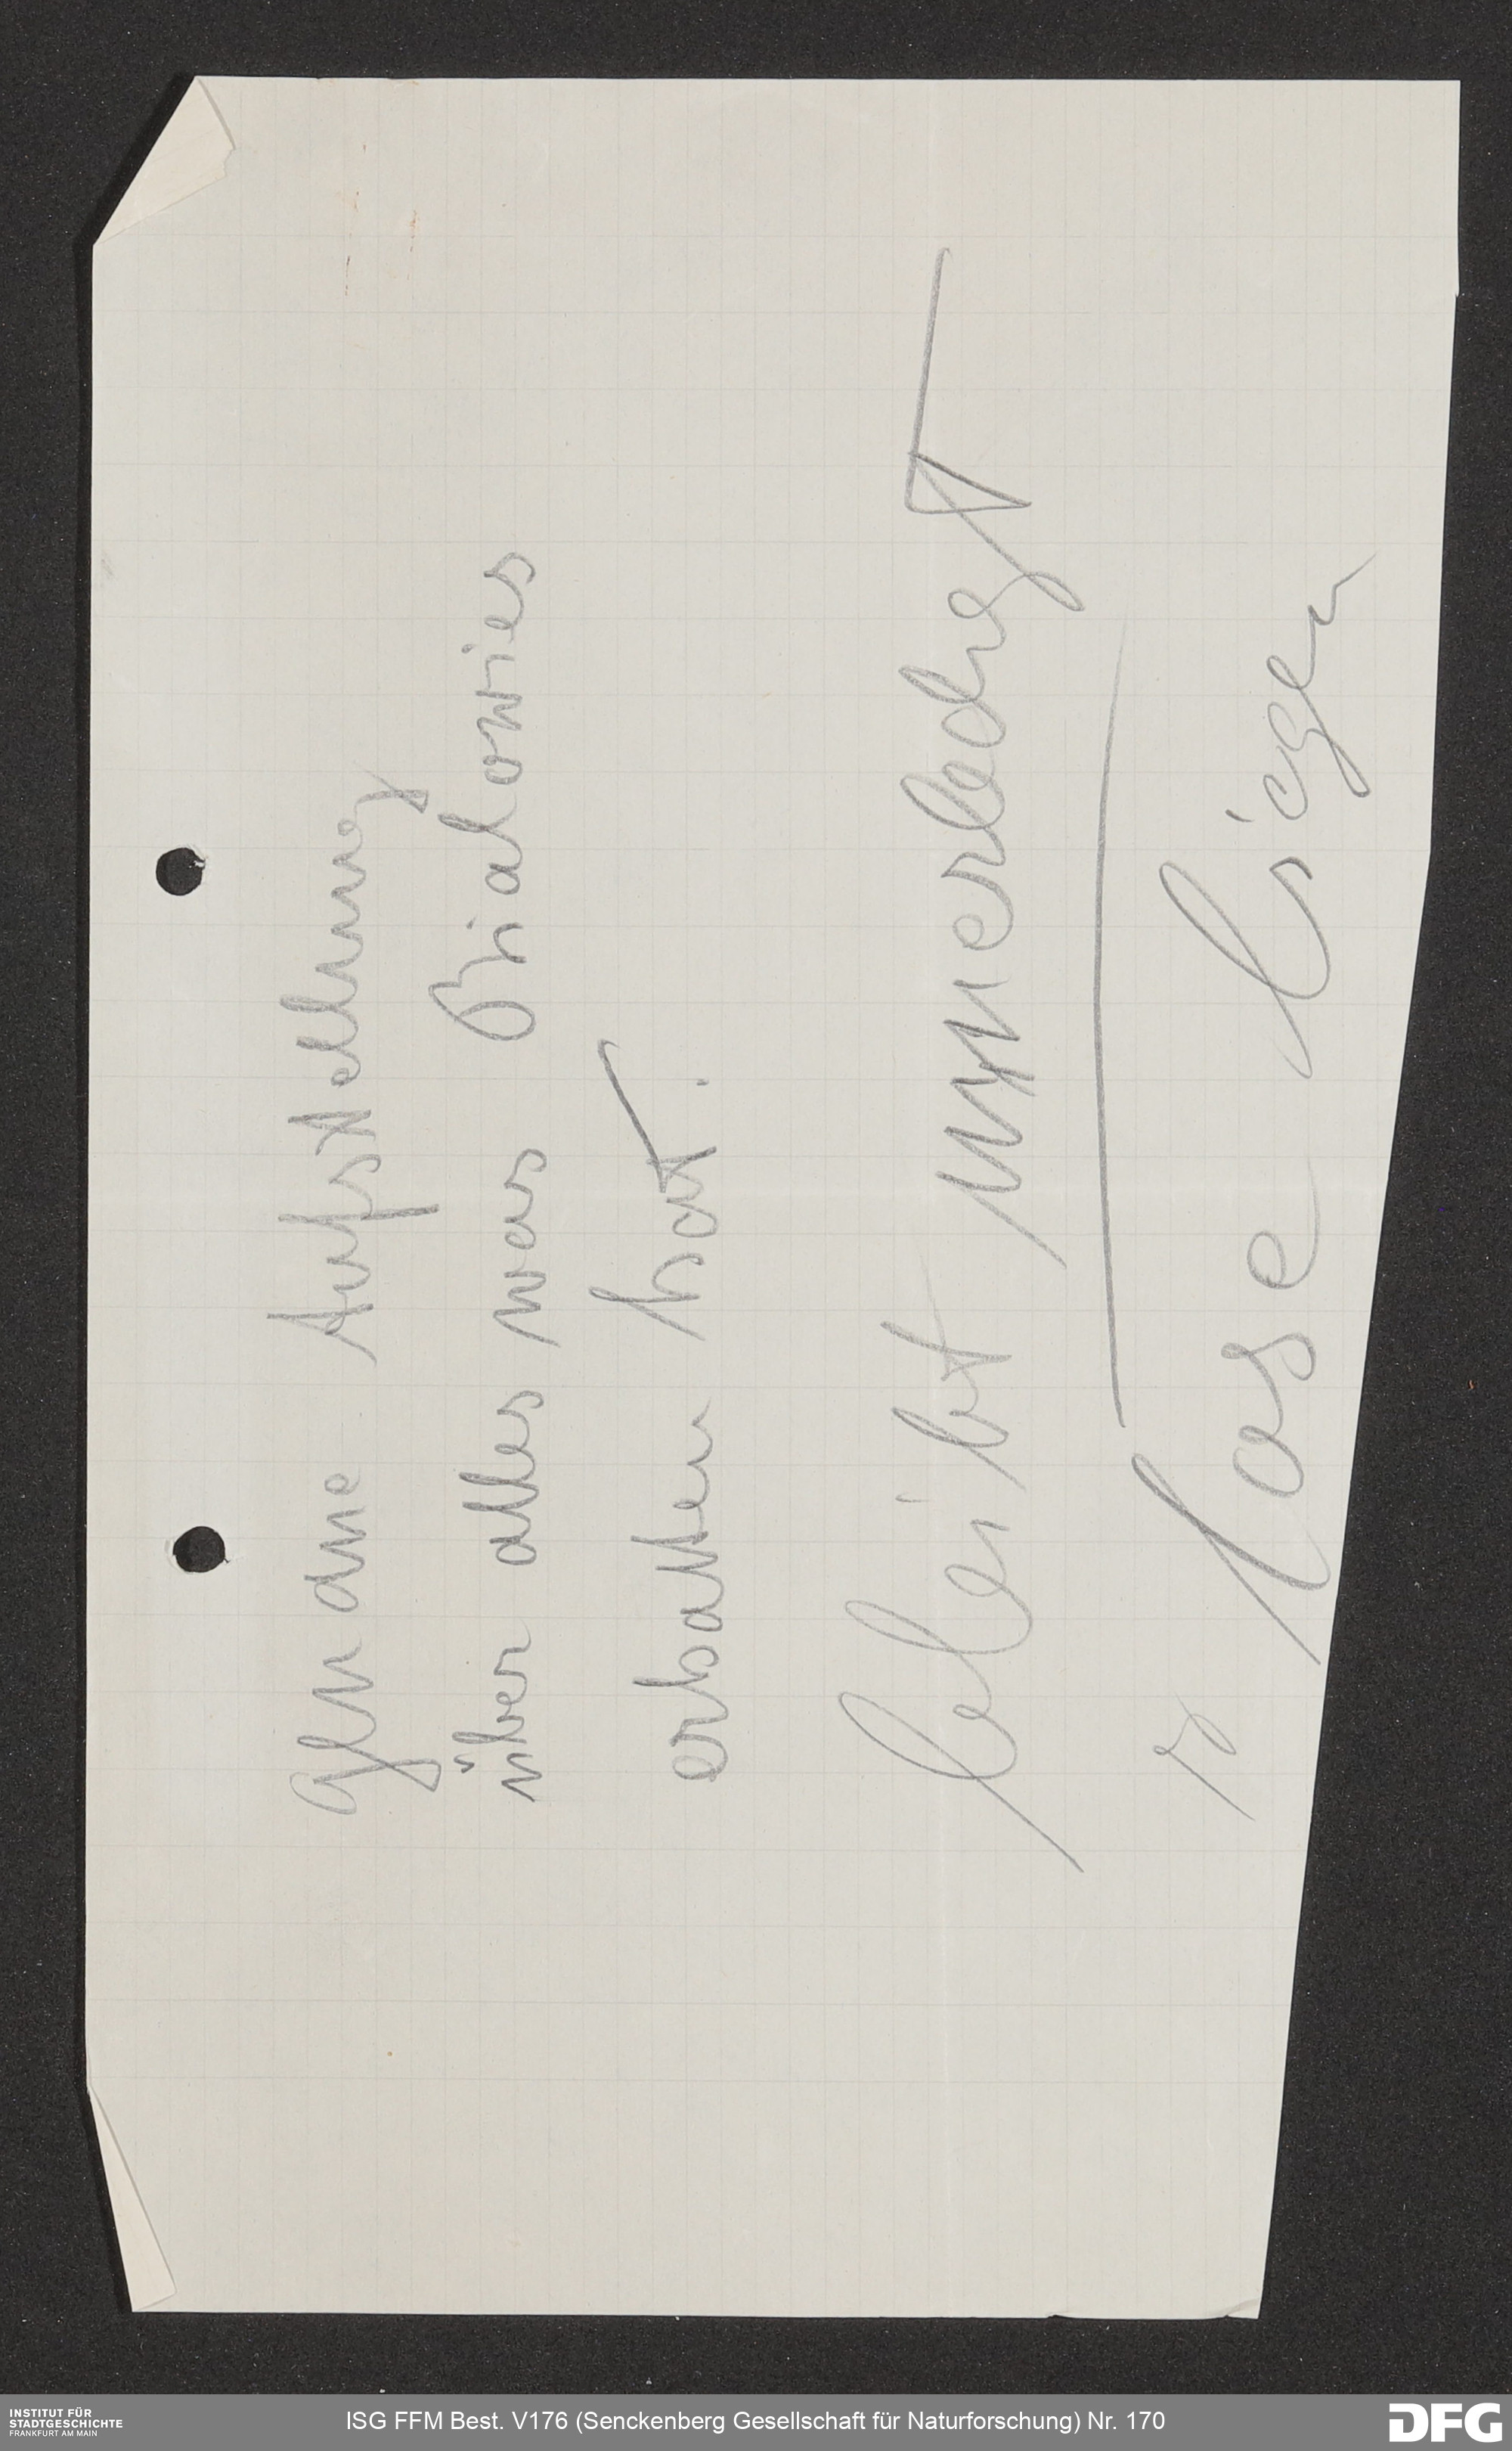 genaue Aufstellung
über alles was Bialowies
erhalten hat.
bleibt unerledigt
lose liegen
INSTITUT FÜR
STADTGESCHICHTE
FRANKFURT AM MAIN
ISG FFM Best. V176 (Senckenberg Gesellschaft für Naturforschung) Nr. 170
DFG